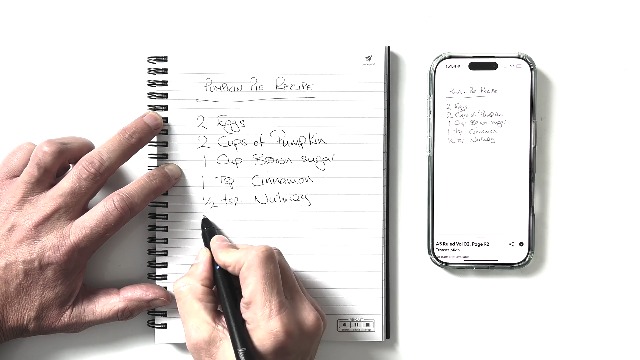 Pumpkin Pie Recipe
2 Eggs
2 Cups of Pumpkin
1 Cup Brown sugar
1 Tsp Cinnamon
1/2 tsp Nutmeg
Pie Recipe
2 Eggs
2 Cups of Pumpkin
1 Cup Brown sugar
1 Tsp Cinnamon
1/2 tsp Nutmeg
A5 Ruled Vol 02, Page 52
Transcription